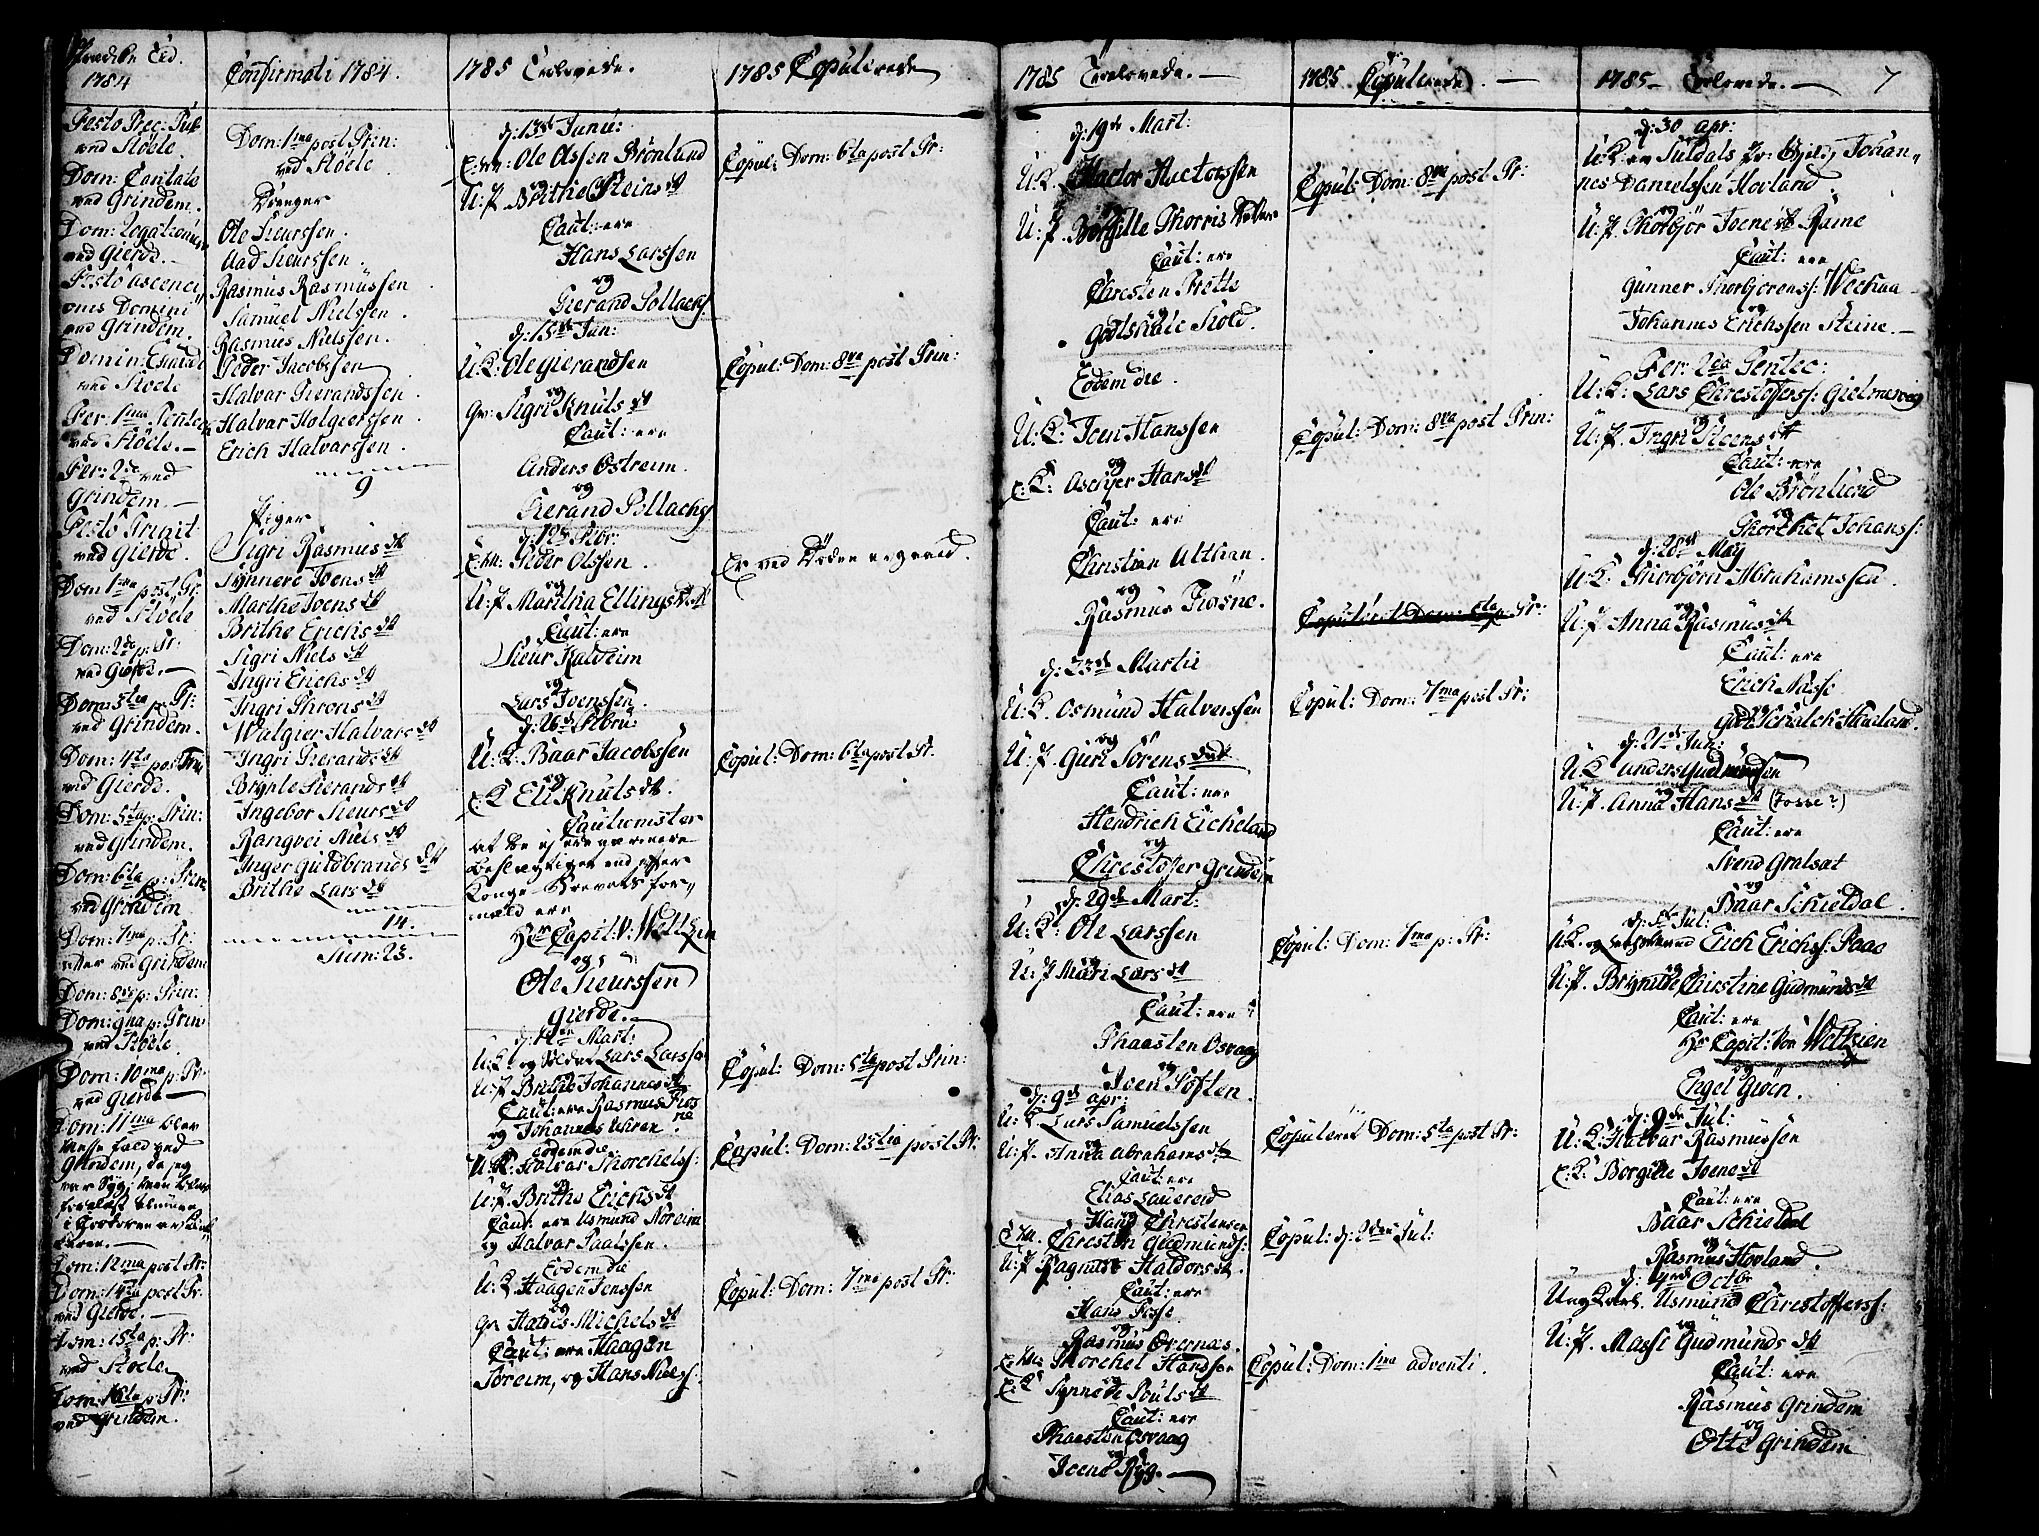 Prædike Tid.
1784
Festo Præc: Pub
ved Stöle.
Dom: Cantate
ved Grindem.
Dom: Rogationum
ved Gierde.
Festo ascenci
onis Domini
ved Grindem.
Domin: Exaudi
ved Stoele
Fer: 1ma Pentec
ved Stöele.
Fer: 2da ved
Grindem.
Festo Trinit
ved Gierde.
Dom 1ma post Tr:
ved Stöele
Dom: 2da p: Tr:
ved Gierde.
Dom: 3tia p: Tr:
ved Grindem.
Dom: 4ta post Trin
ved Gierde.
Dom: 5ta p: Trin:
ved Grindem.
Dom: 6ta p: Trin
ved Grindem
Dom: 7ma p: Tr:
atter ved Grindem
Dom: 8va p: Trin:
Dom: 9na p: Trin
ved Stoele.
Dom: 10ma p: Tr
ved Gierde
Dom: 11ma blev
Messe fald ved
Grindem, da jeg
var Syg;
Dom: 12ma post Tr:
Dom: 14ta post Tr.
ved Gierde.
Dom: 15ta p: Tr:
ved Stoele
Dom: 16ta p: Tr:
ved Grindem.
Confirmati 1784.
Dom: 1ma post Trin:
ved Stöele
Drenger
Ole Siurssen.
Aad Siurssen.
Rasmus Rasmussen.
Samuel Nielssen.
Rasmus Nielssen.
Peder Jacobssen
Halvar Tierandssen.
Halvar Holgierssen.
Erich Halvarssen.
9
Piger
Sigri Rasmus dt
Synnere Joens dt
Marthe Joens dt
Brithe Erichs dt
Sigri Niels dt
Ingri Erichs dt
Ingri Throns dt
Walgier Halvars dt
Ingri Tierands dt
Brynle Tierands dt
Ingebor Sieurs dt
Rangvei Niels dt
Inger Guldbrands dt
Brithe Lars dt
14.
Sum: 23.
1785 Trolovede.
d: 13de Janu:
E: M: Ole Olssen Brönlund
og
U: P. Brithe Steins dt
Caut: ere
Hans Larssen
og
Tierand Sollachs.
d: 15de Jan:
U: K: Ole Gierandsen
og
Gr: Sigri Knuts dt
Caut: ere
Anders Ostreim.
og
Tierand Sollachs
d: 12te Febr:
E: M: Peder Olssen.
og
U: P Maritha Ellings Datt
Caut: ere
Sieur Kalveim
og
Lars Ivenssen.
d: 26de Febru:
U: K. Baar Jacobssen
og
E: K Eli Knuts dt.
Cautionister
at de ej ere nærmere
beslægtiget end efter
Konge Brevets for,,
mæld ere
Hr Capit: V: Weltzin
og
Ole Sieurssen
Gierde.
Mart:
U: K. og Lars Larssen
U: P. Brithe Johannes dt
Caut: ere Rasmus Trös
ne
og Johannes Uiren.
Eodem die
U: K. Halvar Thorchels:
U: P. Brithe Erichs dt
Caut: ere Asmund Noreim
og Halvar Saalssen.
Eodem die
U: K. Haagen Jenssen
og
Gr. Hanes Michels dt
Caut: ere Haagen
Soreim, og Hans Niels:
1785 Copulerede
Copul: Dom: 6ta post Tr:
Copul: Dom: 8va post Trin:
Er ved Döden afgaaed.
Copul: Dom: 6ta post Tr.
Copul: Dom: 5ta post Trin:
Copul: Dom: 23tia post Tr:
Copul: Dom: 7ma post Tr:
1785 Trolovede.
d: 19de Mart:
U: K. Hactor Hactorssen
og
U: P. Börgille Thorris
Caut: ere
Christen Trætte
og
Godtskalc Skold.
Eodem die.
U: K: Joen Hanssen
og
E: K: Aschjer Hans dt
Caut: ere
Christian Althan.
og
Rasmus Trosne.
d: 23de Martii
U: K. Osmund Halverssen
og
U: P. Guri Sörens datt
Caut: ere
Hendrich Eicheland
og
Christoffer Grindem
d: 29de Mart:
U: K: Ole Larssen
og
U: P Mari Lars dt
Caut: ere
Thaasten Osvaag
og
Joen Toften.
d: 9de apr:
U: K Lars Samuelssen
og
U: P. Anna Abrahams dt
Caut: ere
Elias Lauereid
og
Hans Christensen
E: M. Christen Gudmunds:
U: P. Ragnilde Haldors dt.
Caut: ere
Hans Fosse
og
Rasmus Overnæs.
E: M: Thorchel Hanssen
og
E: K Synneve Pouls dt
Caut: ere
Thaasten Osvaag
og
Joen Ryg.
1785 Copulerede.
Copul: Dom: 8va post Tr:
Copul: Dom: 8va post Trin:
Copuleret Dom: 5ta p: Tr:
Copul: Dom: 7ma post Tr:
Copul: Dom: 7ma p: Tr:
Copuleret Dom: 5ta post Tr:
Copul: d: 2den Jul:
Copul: Dom: 1ma adventi.
1785 Trolovede. 7
d: 30 apr:
U: K: av Suldals Pr: Gield, Johan,,
nes Danielssen Hovland.
og
U: P. Thorbjör Joens dt Raine
Caut: ere
Gunner Thorbjörens: Wechaa
og
Johannes Erichssen Steine.
Fer: 2da Pentec:
U: K: Lars Christoffers: Gielmervig
og
U: P. Ingri Steens dt
Caut: ere
Ole Brönlund
og
Thorchel Johans:
d: 28de May
U: K. Thorbjörn Abrahamssen.
og
U: P Anna Rasmus dt
Caut: ere
Erich Næsse
og
d: 21de Jun:
U: K Anders Gudmundsen
og
U: P. Anna Hans dt (Fosse?)
Caut: ere
Svend Gralsat
og
Baar Schieldal.
d: Jul:
U: K. og Erich Erichs: Faae
og
U: P. Brynilde Christine Gudmunds dt
Caut: ere
Hr Capit: Von Weltzien
og
Engel Giöen.
d: 9de Jul:
U: K: Halvar Rasmussen
E: K: Borgilde Joens dt
Caut: ere
Baar Schieldal
og
Rasmus Hovland.
d: Octbr
Ung Karl. Asmund Christoffers:
og
U: P. Massi Gudmunds dt
Caut: ere
Rasmus Grindem
og
Otte Grindem